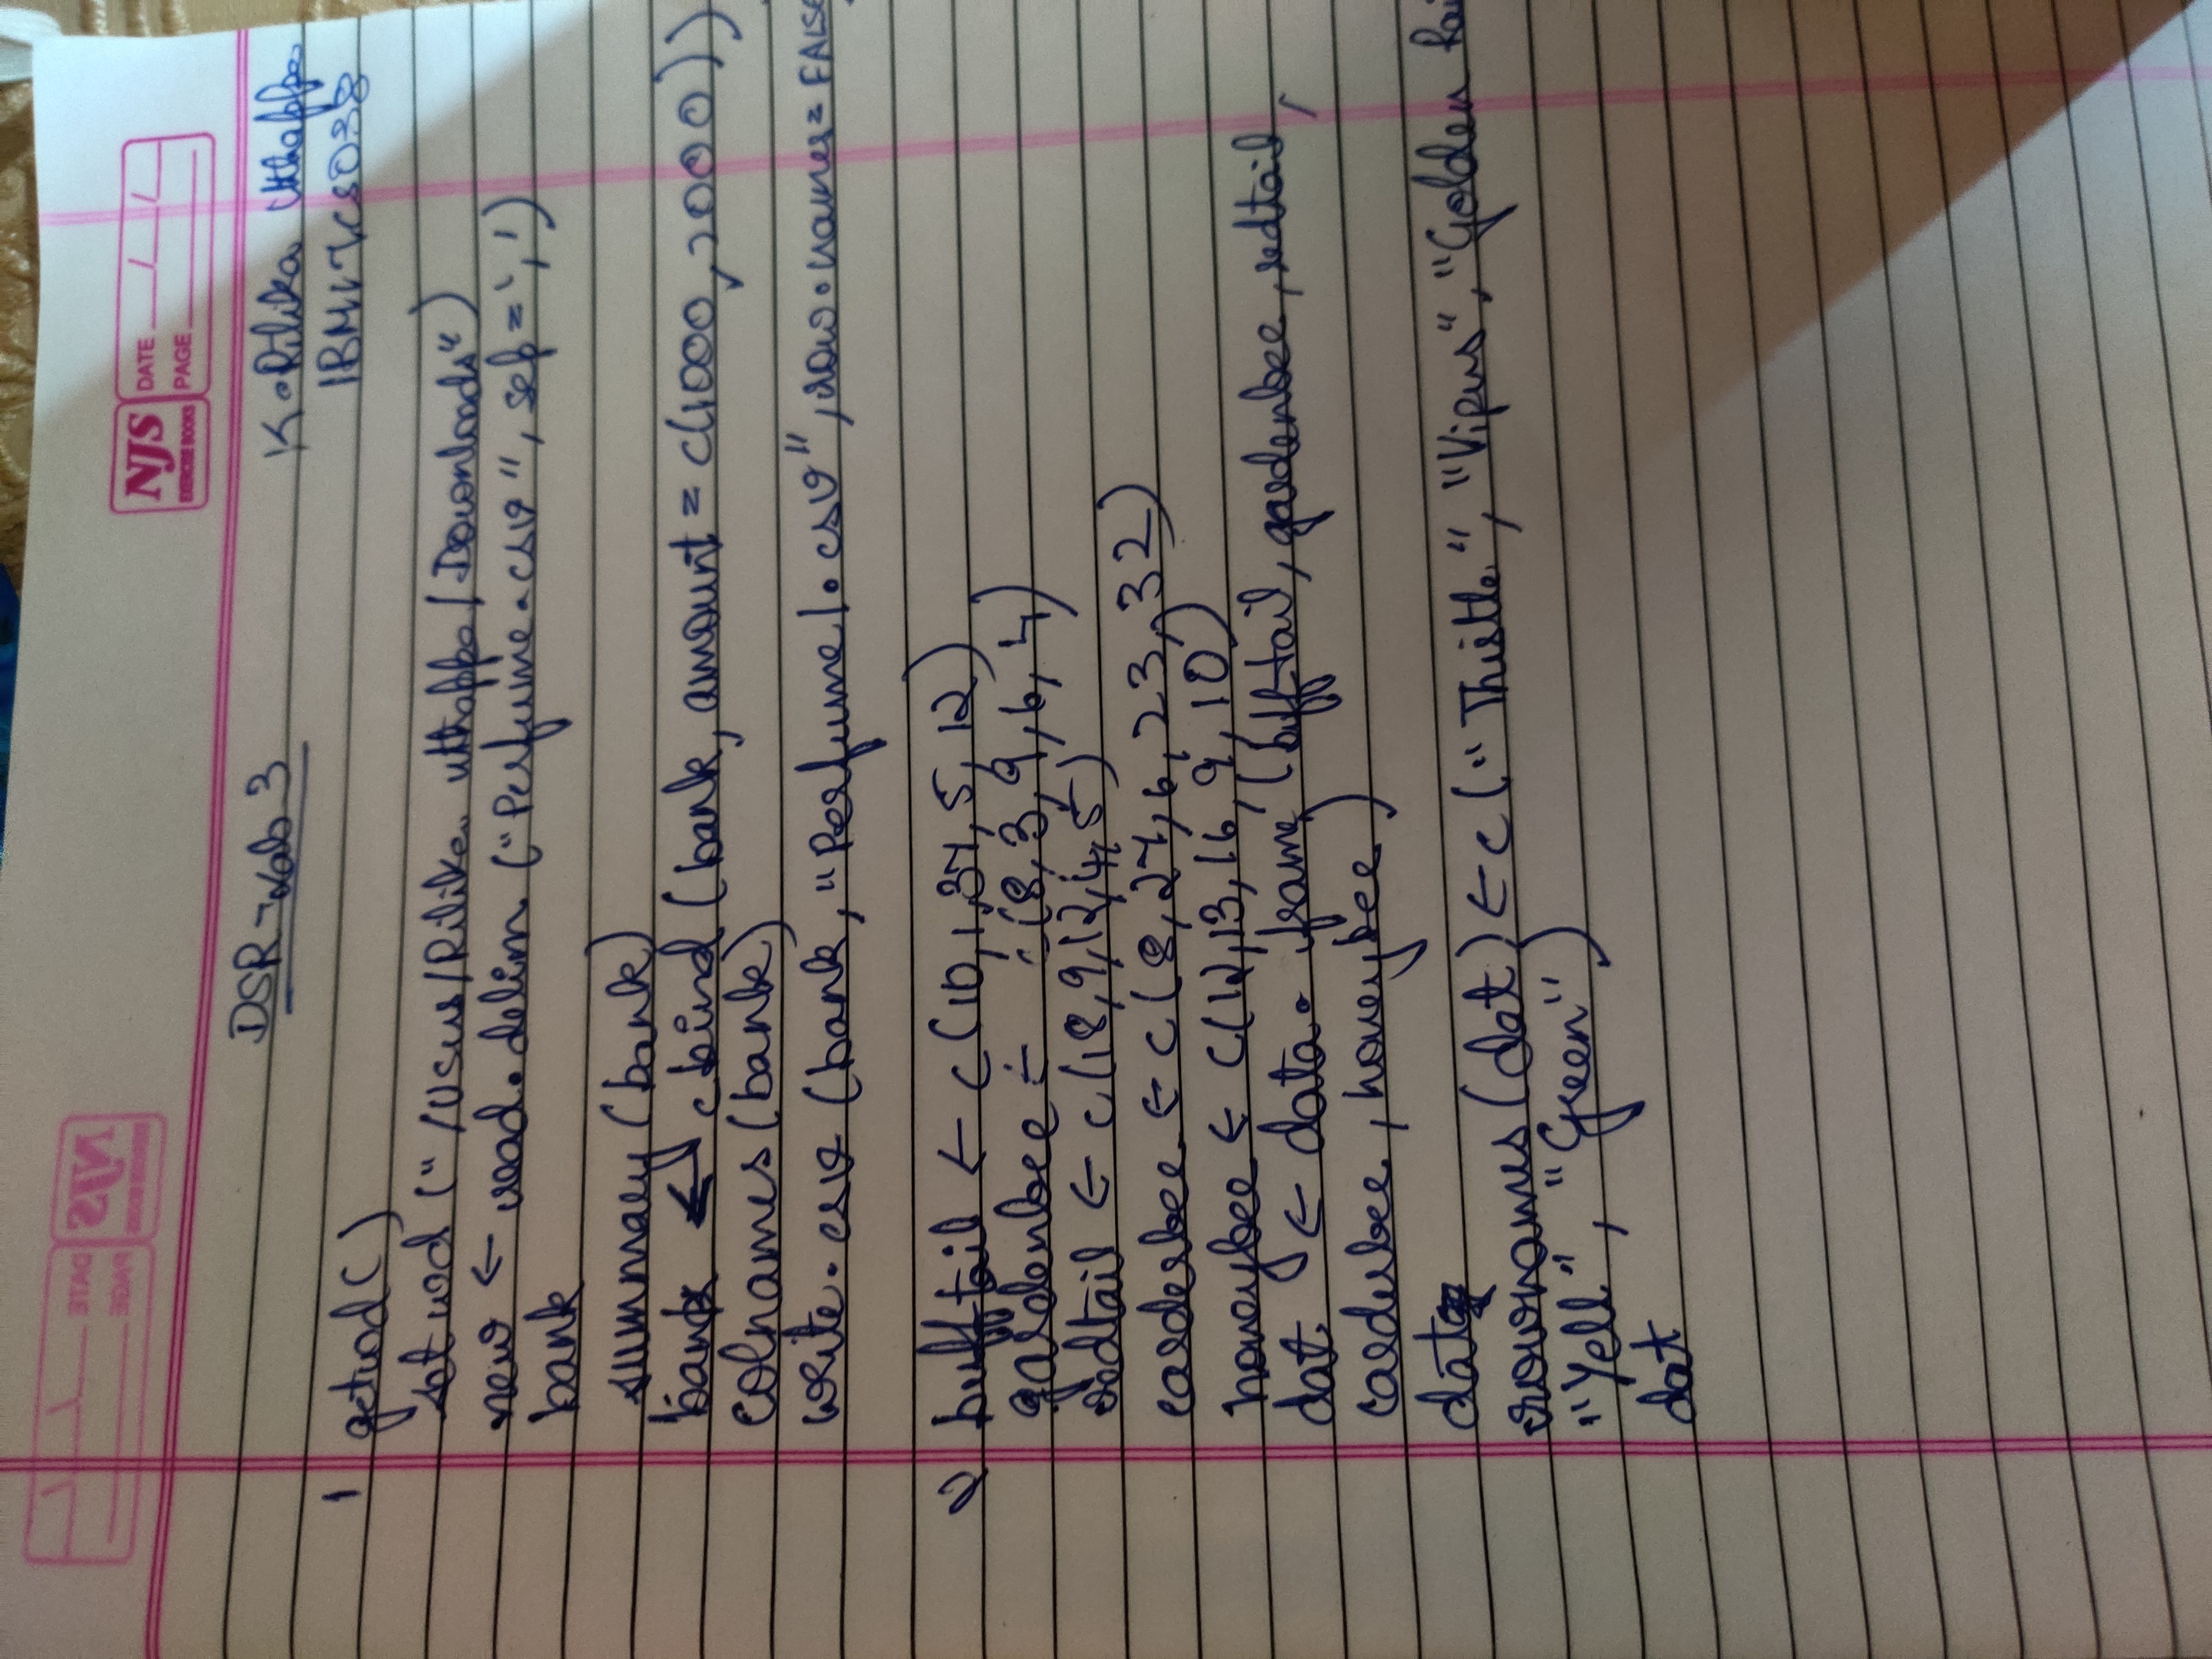 NJS
EXERCISE BOOKS
DATE / /
PAGE
DSR - Lab 3
K. Rilika Uthappa
1BM17CS038
1 getwd()
setwd ("/Users/Rilika uthappa/Downloads")
new ← read.delim ("Perfume.csv", sep=',')
bank
summary (bank)
bank ← cbind (bank, amount = c(1000, 2000))
colnames (bank)
write.csv (bank, "Perfume1.csv", row.names = FALSE
2 bufftail ← c(10,1,37,5,12)
gardenbee ← c(8,3,9,6,4)
redtail ← c(18,9,12,4,5)
carderbee ← c(8,27,6,23,32)
honeybee ← c(12,13,16,9,10)
dat ← data.frame (bufftail, gardenbee, redtail,
carderbee, honeybee)
dat
rownames (dat) ← c("Thistle", "Vipus", "Golden Rai
"Yell", "Green")
dat